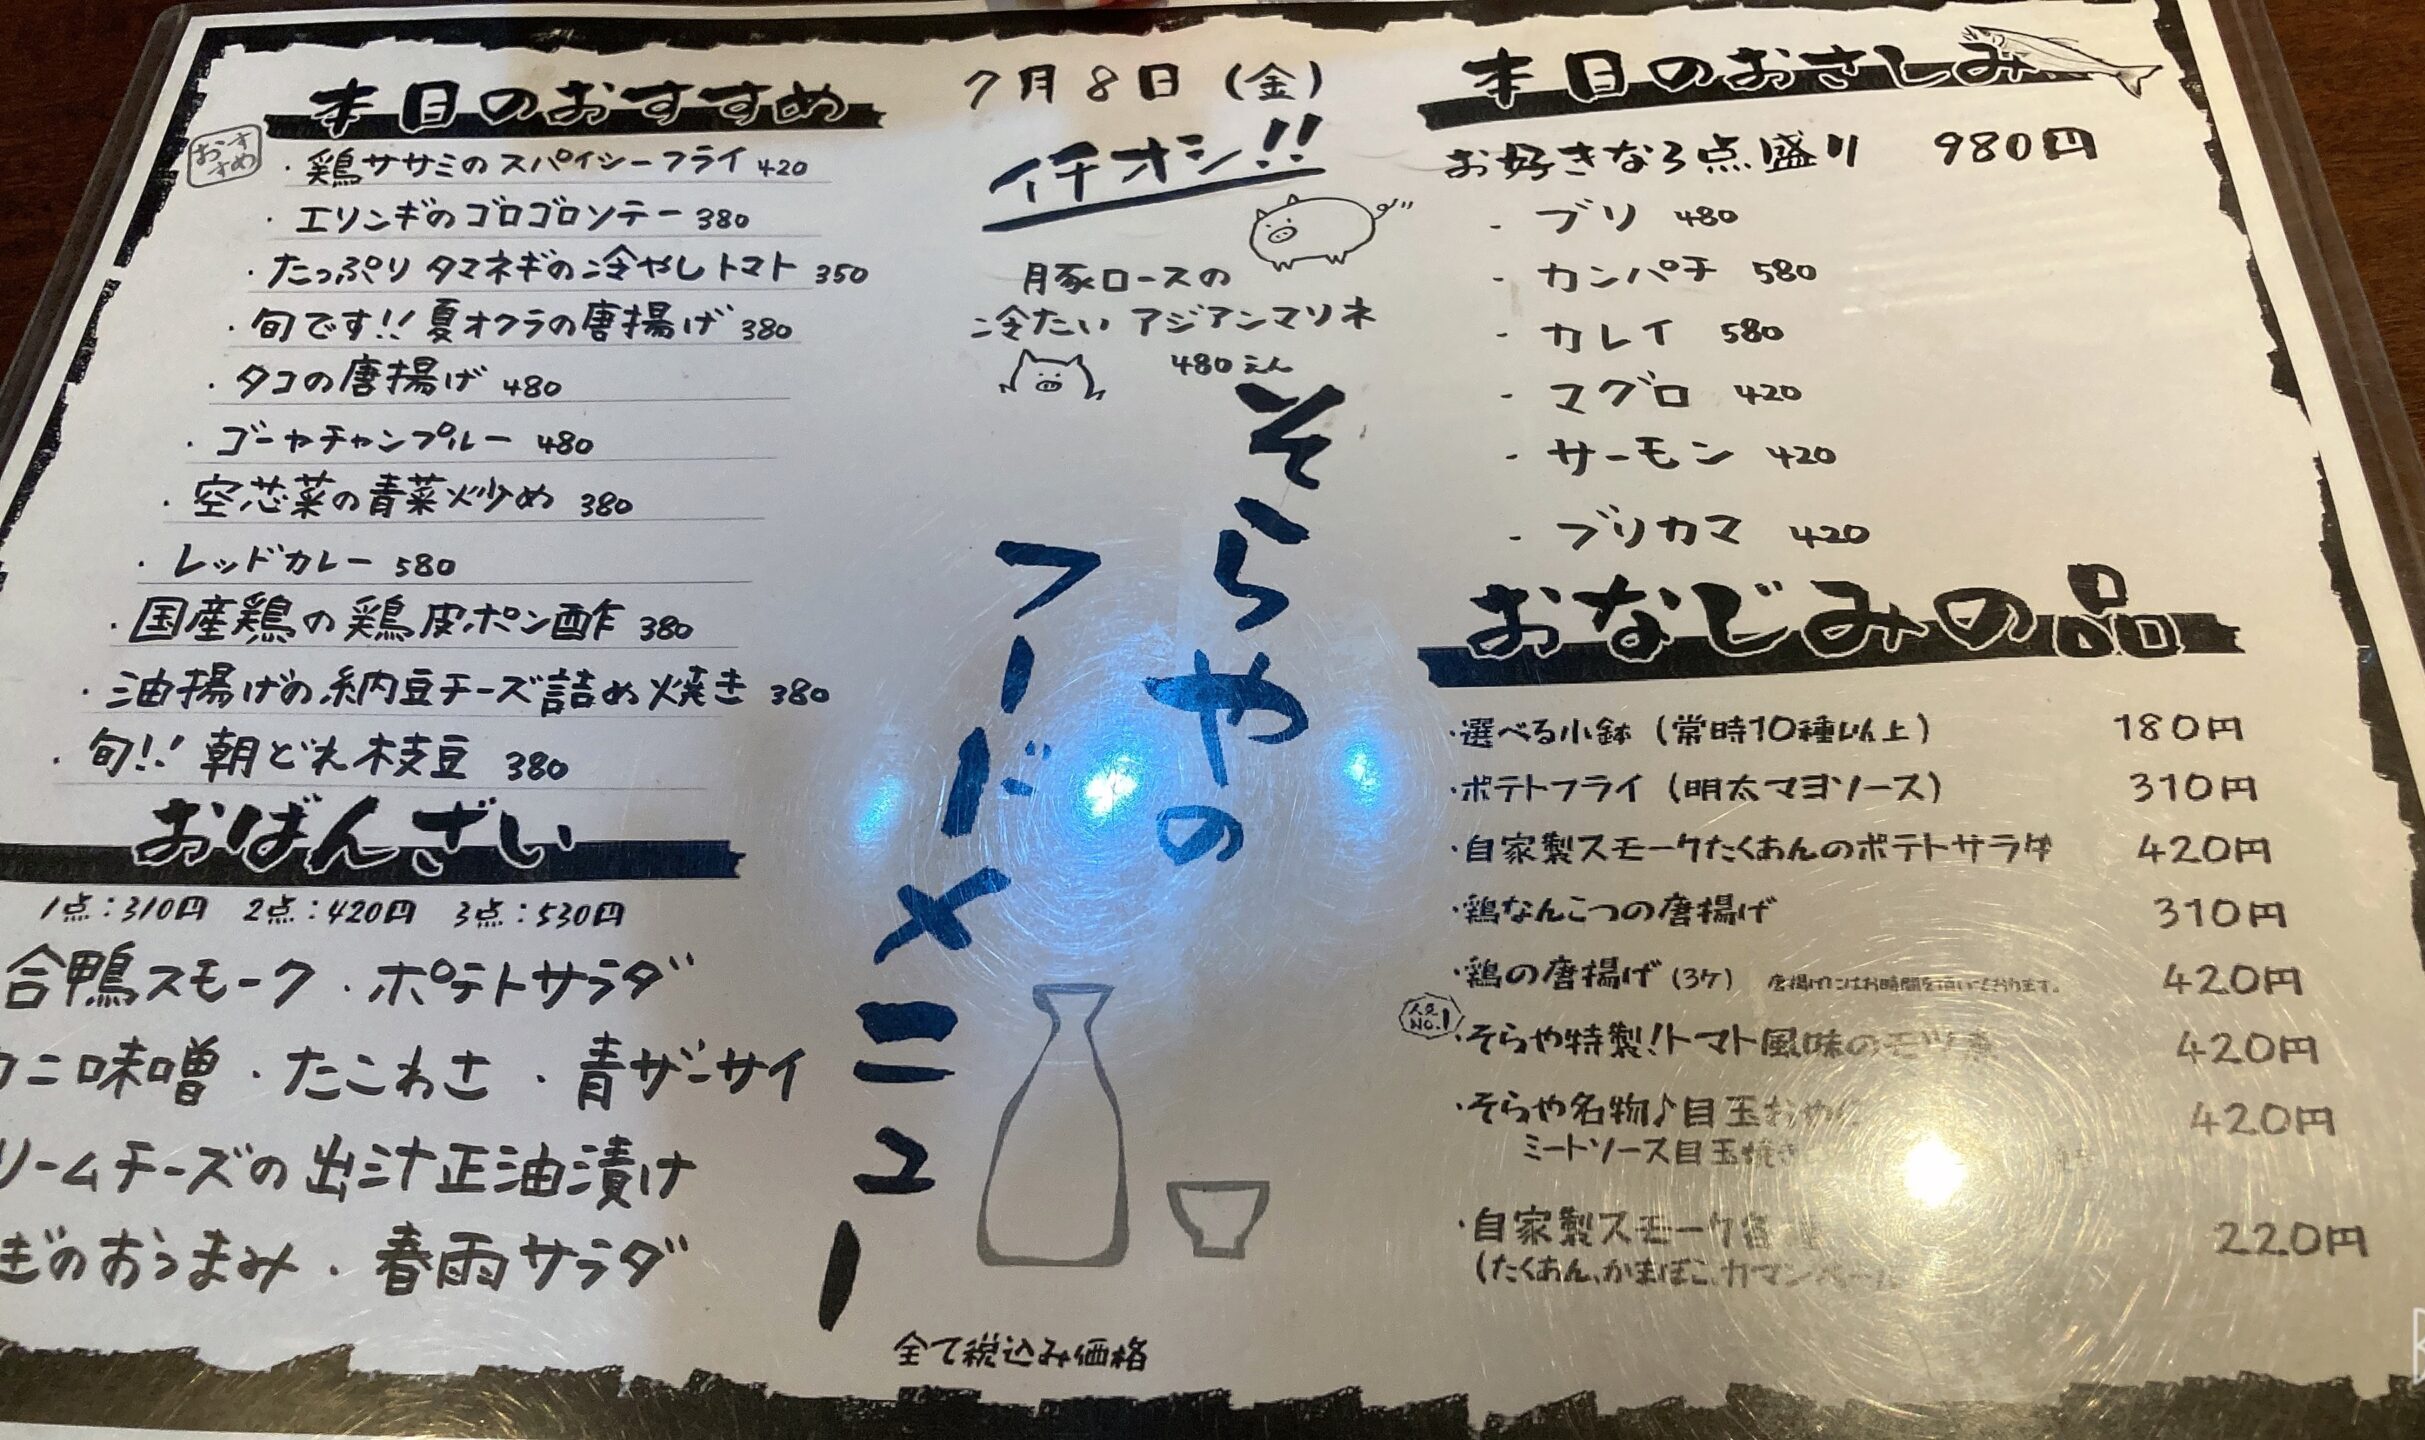 本日のおすすめ
おすすめ
・鶏ササミのスパイシーフライ 420
・エリンギのゴロゴロソテー 380
・たっぷりタマネギの冷やしトマト 350
・旬です!!夏オクラの唐揚げ 380
・タコの唐揚げ 480
・ゴーヤチャンプルー 480
・空芯菜の青菜炒め 380
・レッドカレー 580
・国産鶏の鶏皮ポン酢 380
・油揚げの納豆チーズ詰め焼き 380
・旬!!朝どれ枝豆 380
おばんざい
1点:310円 2点:420円 3点:530円
合鴨スモーク・ポテトサラダ
カニ味噌・たこわさ・青ザーサイ
リームチーズの出汁正油漬け
ぎのおうまみ・春雨サラダ
7月8日(金)
イチオシ!!
豚ロースの
冷たいアジアンマリネ
480えん
そらやの
フードメニュー
全て税込み価格
本日のおさしみ
お好きな3点盛り 980円
- ブリ 480
- カンパチ 580
- カレイ 580
- マグロ 420
- サーモン 420
- ブリカマ 420
おなじみの品
・選べる小鉢(常時10種以上) 180円
・ポテトフライ(明太マヨソース) 310円
・自家製スモークたくあんのポテトサラダ 420円
・鶏なんこつの唐揚げ 310円
・鶏の唐揚げ(3ケ) 唐揚げにはお時間を頂いております。 420円
人気No.1
・そらや特製!トマト風味のモツ煮 420円
・そらや名物♪目玉おや 420円
ミートソース目玉焼き
・自家製スモーク各種 220円
(たくあん、かまぼこ、カマンベール